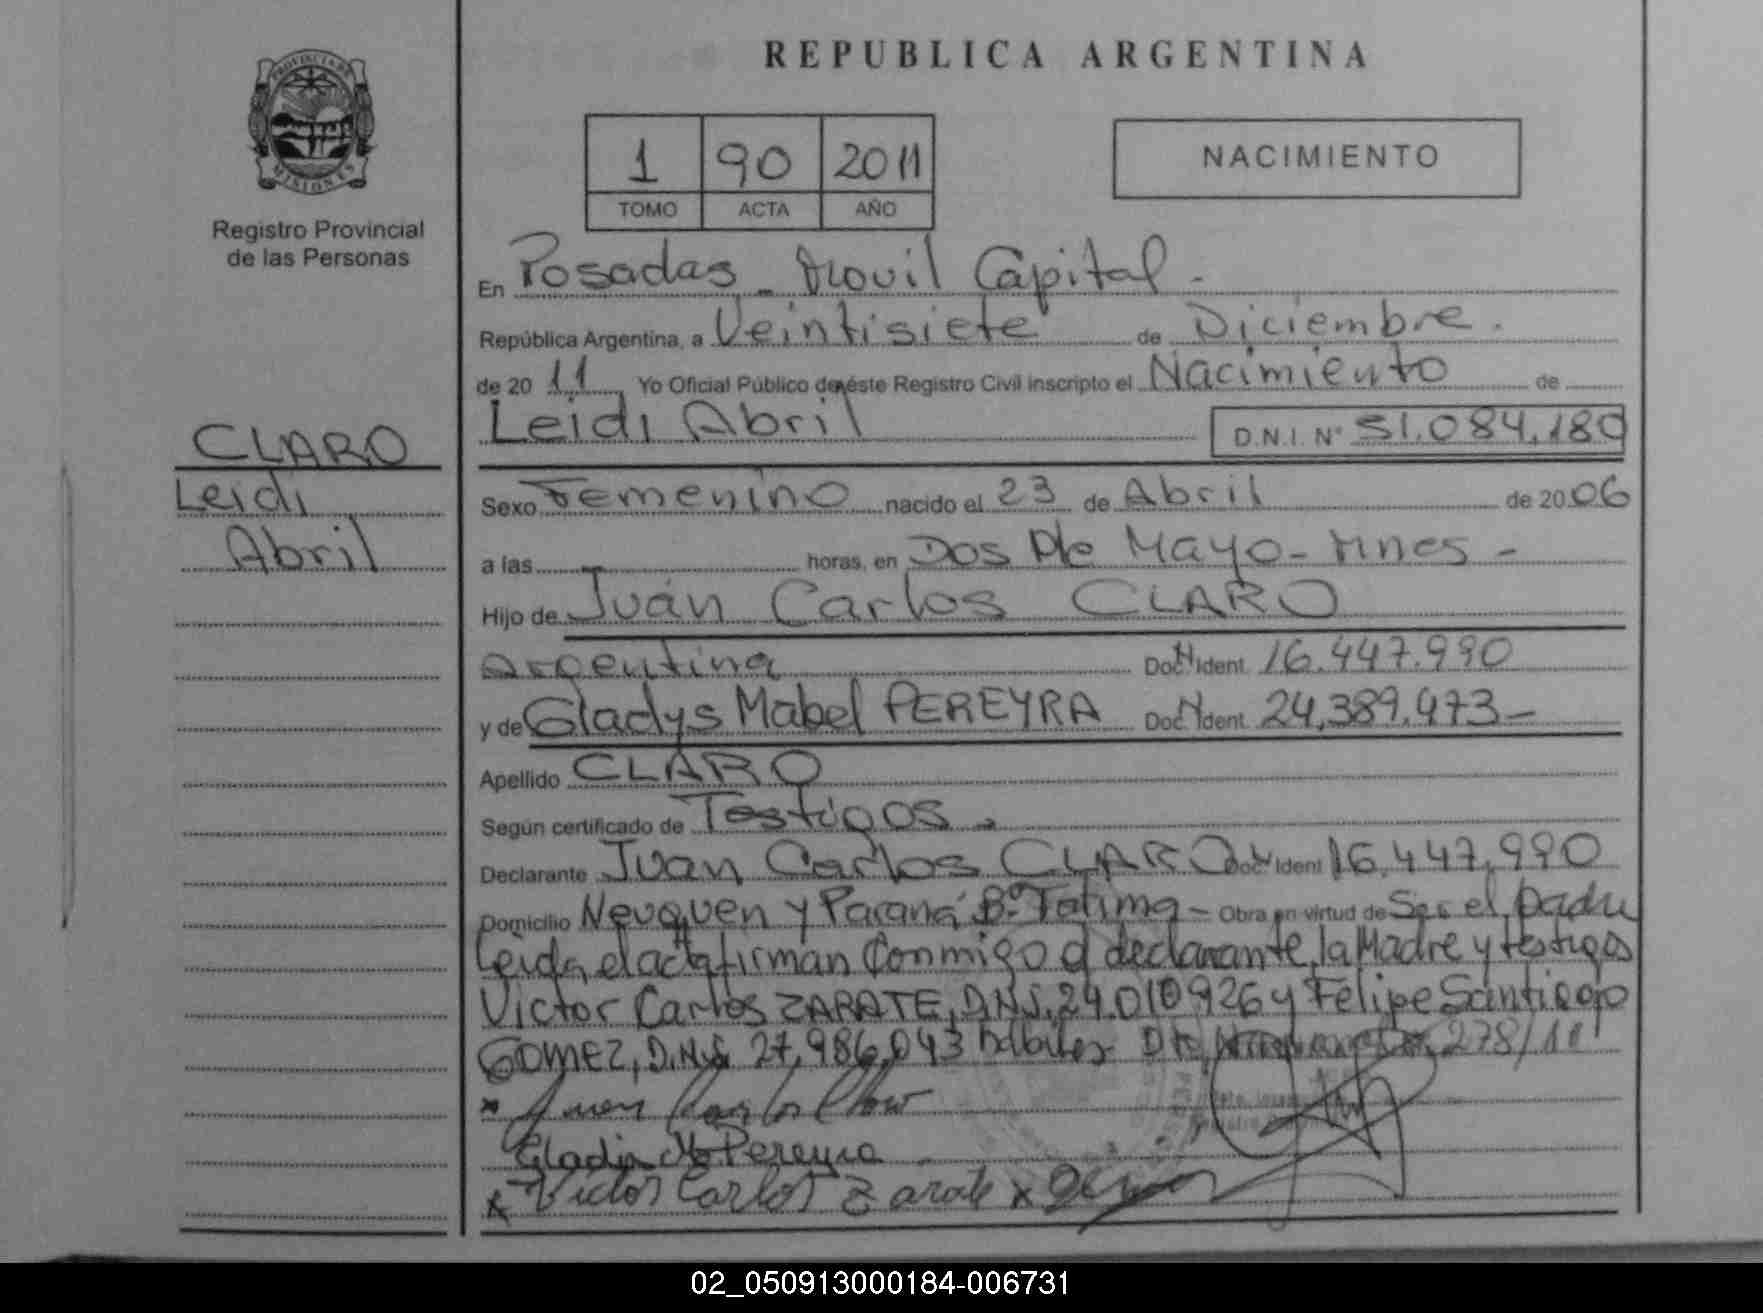 REPUBLICA ARGENTINA
PROVINCIA DE
MISIONES
Registro Provincial
de las Personas
1 90 2011
TOMO ACTA AÑO
NACIMIENTO
En Posadas - Movil Capital -
República Argentina, a Veintisiete de Diciembre.
de 20 11 Yo Oficial Público de éste Registro Civil inscripto el Nacimiento de
Leidi Abril D.N.I. N° 51.084.180
CLARO
Leidi
Abril
Sexo Femenino nacido el 23 de Abril de 2006
a las horas, en Dos De Mayo - Mnes -
Hijo de Juan Carlos CLARO
Argentina Doc. N Ident. 16.447.990
y de Gladys Mabel PEREYRA Doc. N Ident. 24,389,473 -
Apellido CLARO
Según certificado de Testigos -
Declarante Juan Carlos CLARO Doc. N Ident 16,447,990
Domicilio Neuquen y Paraná B° Fatima - Obra en virtud de Ser el padre
Leida el acta firman Conmigo el declarante, la Madre y testigos
Victor Carlos ZARATE, D.N.I. 24.010926 y Felipe Santiago
GOMEZ, D.N.I. 27,986,043 habiles 278/11
Juan Carlos Claro
Gladis M Pereyra
Victor Carlos Zarate x
02_050913000184-006731